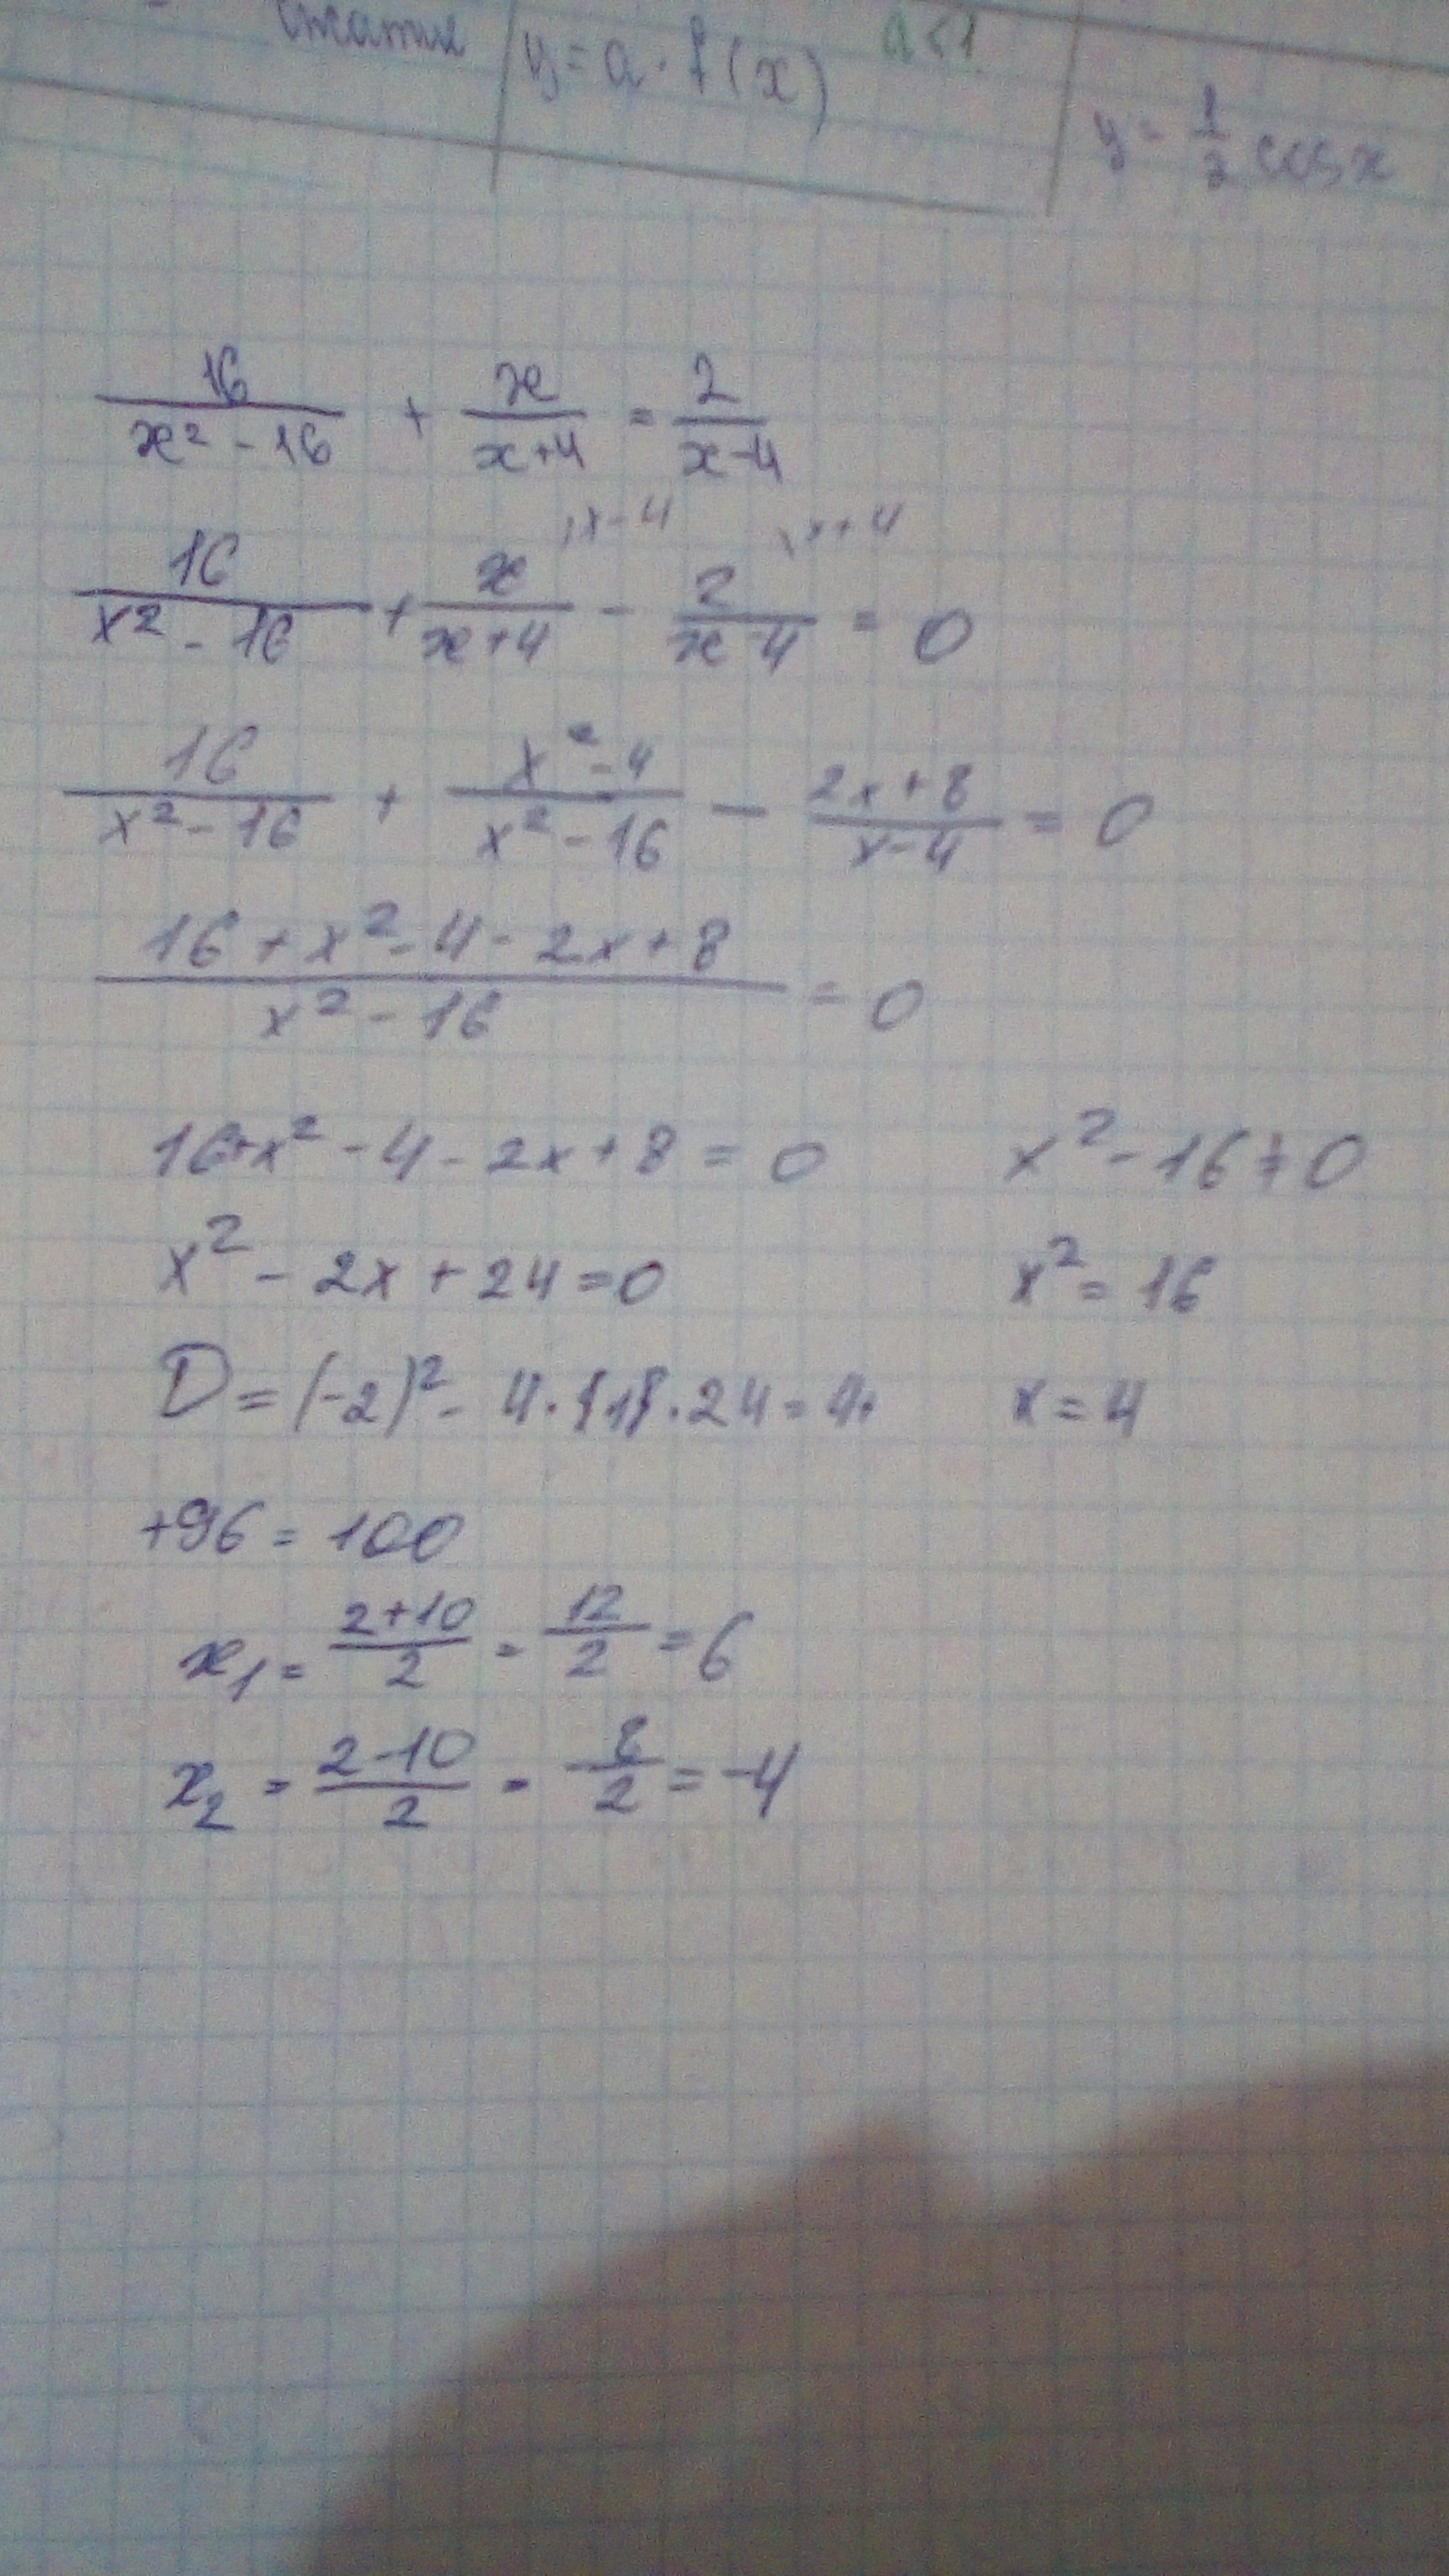 сжатие y = a · f(x) a < 1
y = 1/2 cos x
16/(x² - 16) + x/(x+4) = 2/(x-4)
16/(x² - 16) + x/(x+4) \x-4 - 2/(x-4) \x+4 = 0
16/(x² - 16) + (x² - 4)/(x² - 16) - (2x + 8)/(x - 4) = 0
(16 + x² - 4 - 2x + 8)/(x² - 16) = 0
16 + x² - 4 - 2x + 8 = 0 x² - 16 ≠ 0
x² - 2x + 24 = 0 x² = 16
D = (-2)² - 4 · (1) · 24 = 4 + x = 4
+96 = 100
x₁ = (2+10)/2 = 12/2 = 6
x₂ = (2-10)/2 = -8/2 = -4